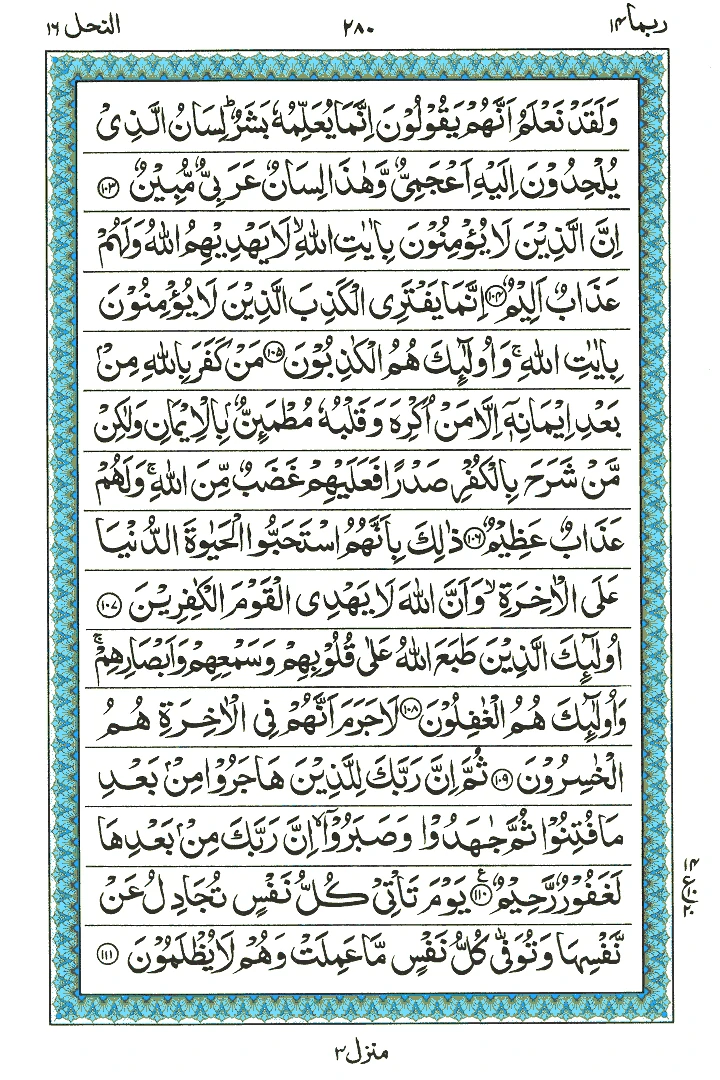 ربما ١٤ ٢٨٠ النحل ١٦
وَلَقَدْ نَعْلَمُ اَنَّهُمْ يَقُوْلُوْنَ اِنَّمَا يُعَلِّمُهٗ بَشَرٌ ؕ لِسَانُ الَّذِیْ
يُلْحِدُوْنَ اِلَيْهِ اَعْجَمِیٌّ وَّهٰذَا لِسَانٌ عَرَبِیٌّ مُّبِيْنٌ ١٠٣
اِنَّ الَّذِيْنَ لَا يُؤْمِنُوْنَ بِاٰيٰتِ اللّٰهِ ۙ لَا يَهْدِيْهِمُ اللّٰهُ وَلَهُمْ
عَذَابٌ اَلِيْمٌ ١٠٤ اِنَّمَا يَفْتَرِی الْكَذِبَ الَّذِيْنَ لَا يُؤْمِنُوْنَ
بِاٰيٰتِ اللّٰهِ ۚ وَاُولٰٓئِكَ هُمُ الْكٰذِبُوْنَ ١٠٥ مَنْ كَفَرَ بِاللّٰهِ مِنْۢ
بَعْدِ اِيْمَانِهٖۤ اِلَّا مَنْ اُكْرِهَ وَقَلْبُهٗ مُطْمَئِنٌّۢ بِالْاِيْمَانِ وَلٰكِنْ
مَّنْ شَرَحَ بِالْكُفْرِ صَدْرًا فَعَلَيْهِمْ غَضَبٌ مِّنَ اللّٰهِ ۚ وَلَهُمْ
عَذَابٌ عَظِيْمٌ ١٠٦ ذٰلِكَ بِاَنَّهُمُ اسْتَحَبُّوا الْحَيٰوةَ الدُّنْيَا
عَلَی الْاٰخِرَةِ ۙ وَاَنَّ اللّٰهَ لَا يَهْدِی الْقَوْمَ الْكٰفِرِيْنَ ١٠٧
اُولٰٓئِكَ الَّذِيْنَ طَبَعَ اللّٰهُ عَلٰی قُلُوْبِهِمْ وَسَمْعِهِمْ وَاَبْصَارِهِمْ ۚ
وَاُولٰٓئِكَ هُمُ الْغٰفِلُوْنَ ١٠٨ لَا جَرَمَ اَنَّهُمْ فِی الْاٰخِرَةِ هُمُ
الْخٰسِرُوْنَ ١٠٩ ثُمَّ اِنَّ رَبَّكَ لِلَّذِيْنَ هَاجَرُوْا مِنْۢ بَعْدِ
مَا فُتِنُوْا ثُمَّ جٰهَدُوْا وَصَبَرُوْۤا ۙ اِنَّ رَبَّكَ مِنْۢ بَعْدِهَا
لَغَفُوْرٌ رَّحِيْمٌ ١١٠ ع يَوْمَ تَاْتِیْ كُلُّ نَفْسٍ تُجَادِلُ عَنْ
نَّفْسِهَا وَتُوَفّٰی كُلُّ نَفْسٍ مَّا عَمِلَتْ وَهُمْ لَا يُظْلَمُوْنَ ١١١
١٤
ع ١٠
٢٠
منزل ٣